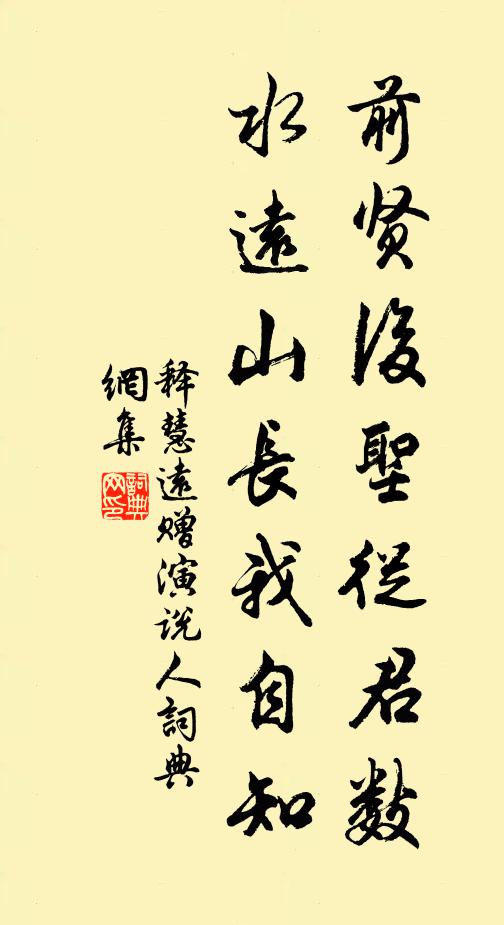 前贤後聖從君数
水遠山長我自知
释慧遠赠演说人詞典
網集
詞典
网印